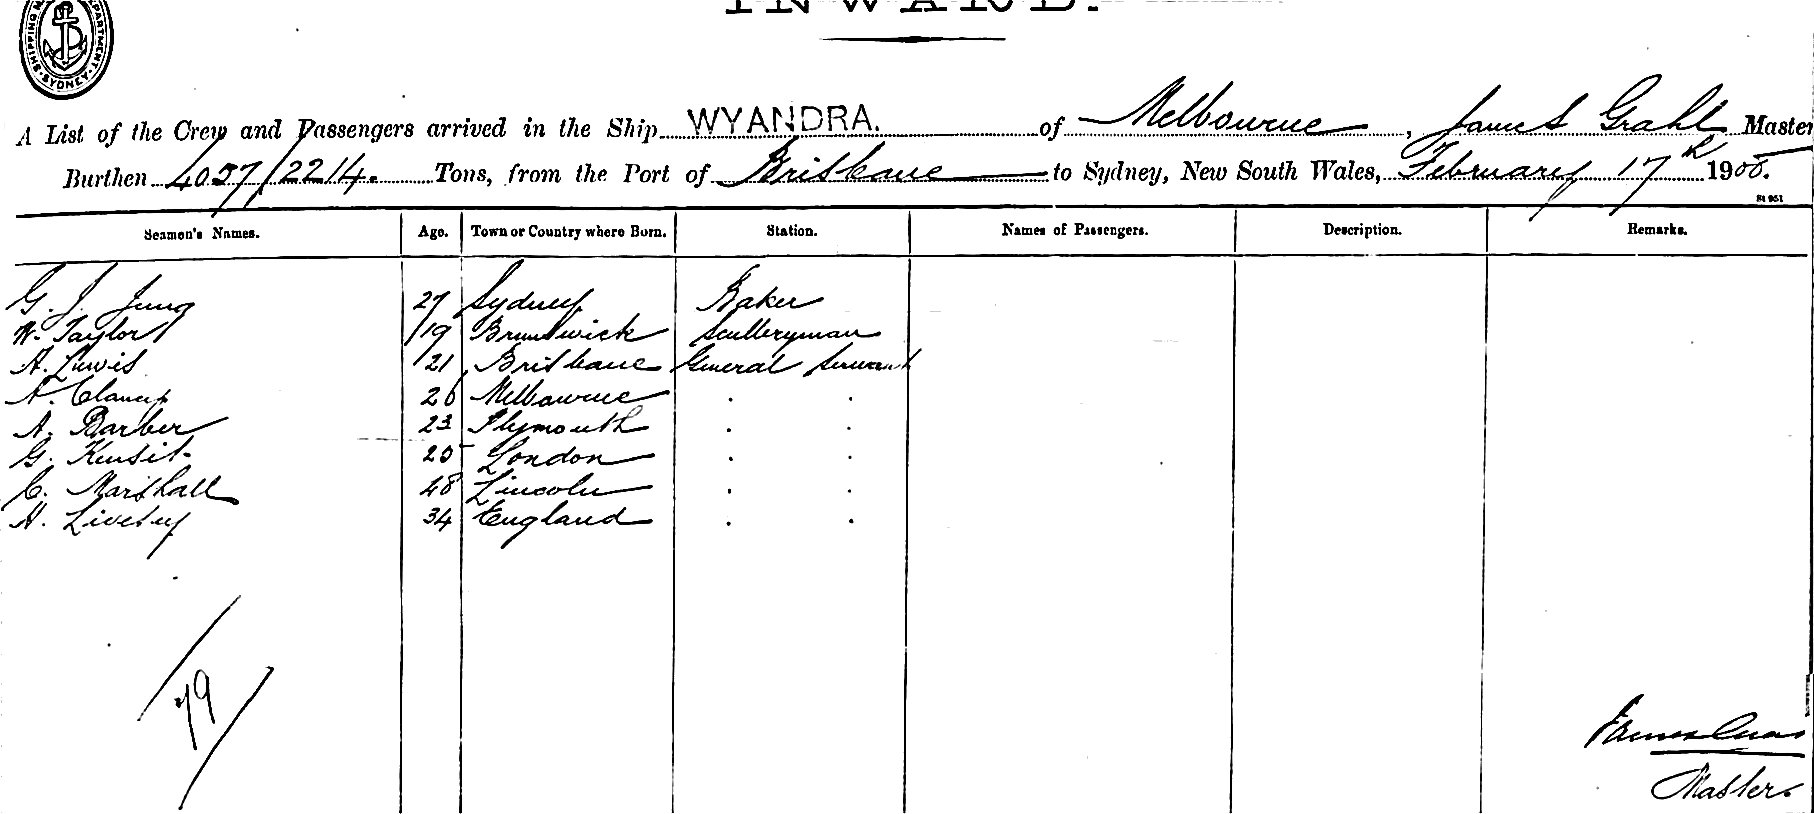 SHIPPING DEPARTMENT. SYDNEY
INWARD.
A List of the Crew and Passengers arrived in the Ship WYANDRA. of Melbourne, James Grahl Master
Burthen 4057/2214. Tons, from the Port of Brisbane to Sydney, New South Wales, February 17th 1900.
St 951
Seamen's Names. Age. Town or Country where Born. Station. Names of Passengers. Description. Remarks.
G. J. Jung 27 Sydney Baker
W. Taylor 19 Brunswick Sculleryman
A. Lewis 21 Brisbane General Servant
A. Clancy 26 Melbourne . .
A. Barber 23 Plymouth . .
G. Kensit 25 London . .
C. Marshall 48 Lincoln . .
H. Livesey 34 England . .
79
Master.